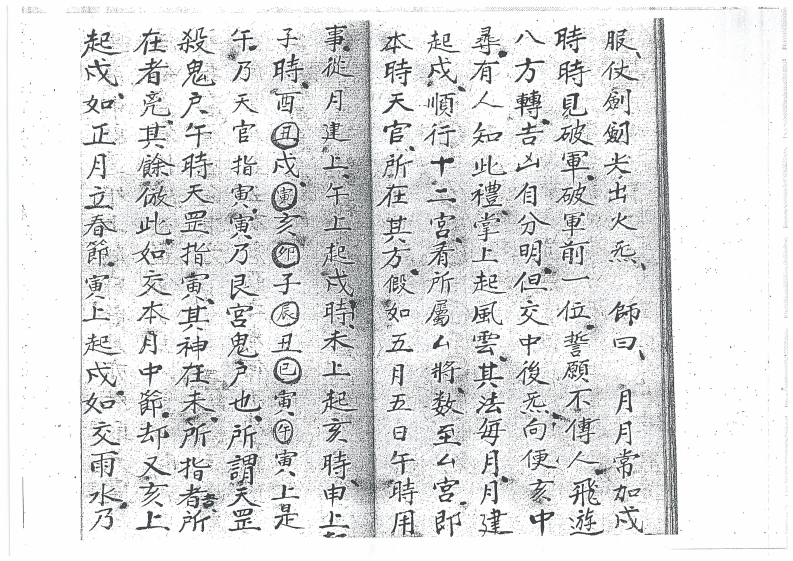 服仗劍劒尖出火炁　師曰　月月常加戍
時時見破軍破軍前一位誓願不傳人飛遊
八方轉吉凶自分明但交中後炁向便亥中
尋有人知此禮掌上起風雲其法每月月建
起戍順行十二宮看所屬厶將数至厶宮即
本時天官所在其方假如五月五日午時用
事從月建上午上起戍時未上起亥時申上起
子時酉丑戍寅亥卯子辰丑巳寅午寅上是
午乃天官指寅寅乃艮宮鬼户也所謂天罡
殺鬼户午時天罡指寅其神在未所指者吉所
在者亮其餘倣此如交本月中節却又亥上
起戍如正月立春節寅上起戍如交雨水乃